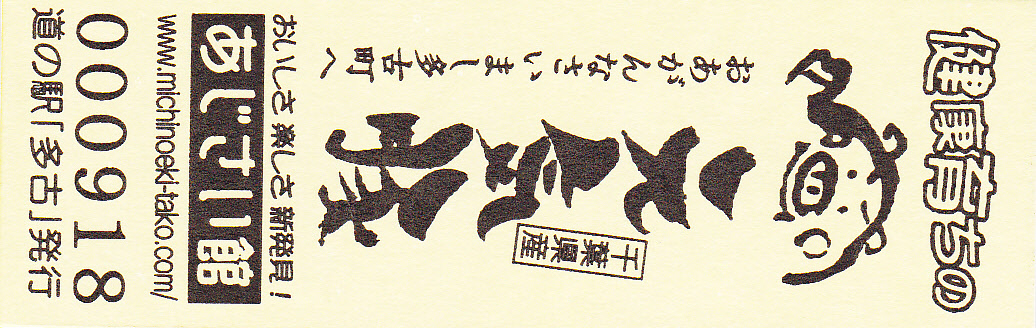 健康育ちの
千葉県産
元気豚
おあがんなさいまし多古町へ
おいしさ 楽しさ 新発見！
あじさい館
www.michinoeki-tako.com/
000918
道の駅「多古」発行